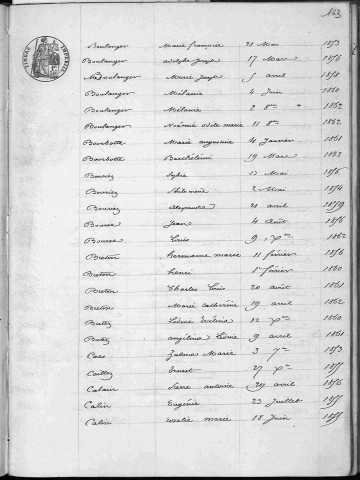 143
TIMBRE IMPERIAL
Boulanger Marie françoise 21 Mai 1853
Boulanger adolphe Joseph 17 Mars 1856
Boulanger Marie Joseph 5 avril 1858
Boulanger Mélanie 4 Juin 1860
Boulanger Mélanie 2 8bre 1862
Boulanger Noémie odile marie 11 8bre 1862
Bourbotte Marie augustine 4 Janvier 1861
Bourbotte Barthélémi 19 Mars 1862
Bouriez Sophie 13 Mai 1856
Bouriez Philomène 2 Mai 1854
Bouriez Alexandre 21 avril 1859
Bourse Jean 4 Août 1856
Bourse Louis 9 Xbre 1862
Breton hermanie marie 11 février 1856
Breton henri 1er février 1860
Breton Charles Louis 20 août 1861
Breton Marie catherine 19 avril 1862
Butez Léonie Eveline 12 Xbre 1860
Butez angélina Léonie 9 avril 1861
Caes Zulma Marie 3 7bre 1853
Caillez Ernest 27 Xbre 1855
Calain Pierre antoine 29 avril 1856
Calin Eugénie 23 Juillet 1855
Calin rosalie marie 18 Juin 1855